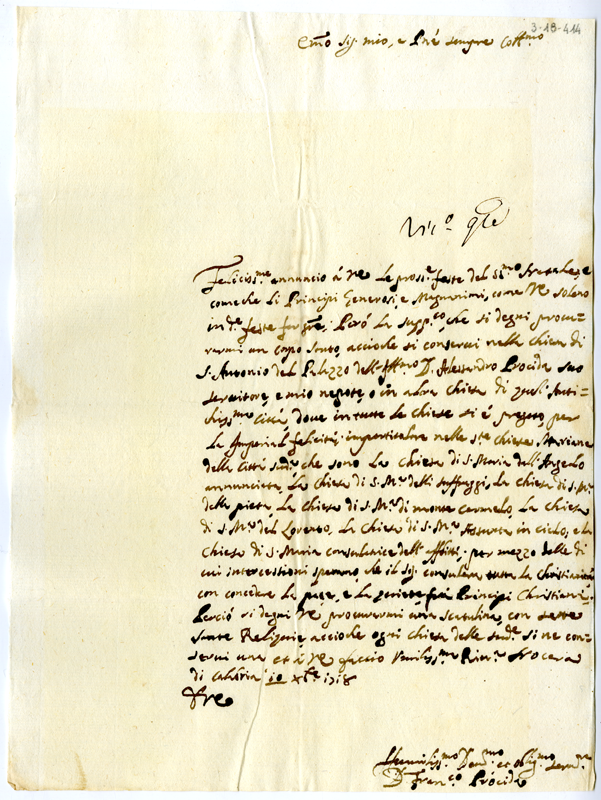 3-18-414
Emo Sig. mio, e Pne sempre Coll.mo
Felicis.me annuncio á VE le pros.e feste del S.mo Natale, e
come che li Principi Generosi, e Magnanimi, come VE solano
in d.e feste far gre; Peró la supp.co, che si degni procu=
rarmi un corpo santo, acciòche si conservi nella chiesa di
S. Antonio del Palazzo dell' Illmo D. Alessandro Procida suo
servitore, e mio nepote, o in altra chiesa di quest' Anti=
chiss.ma Città, dove in tutte le chiese si é pregato, per
la Imperial felicitá; in particolare nelle s.te chiese Mariane
della Città sud.a che sono la chiesa di S. Maria dell' Angelo
annunciata, la chiesa di S. M.a delli suffraggi, la chiesa di S. M.a
della pietá, la chiesa di S. M.a di monte carmelo, la chiesa
di S. M.a del Loreto, la chiesa di S. M.a Assunta in cielo; e la
chiesa di S. Maria consolatrice dell' afflitti; per mezzo delle di
cui intercessioni speramo, che il Sig. consolerá tutta la christianitá
con concedere la pace, e la quiete frá Principi Christiani.
Perció si degni VE procurarmi una scatulina, con sette
sante Reliquie, acciòche ogni chiesa delle sud.e si ne con=
servi una et á VE faccio humiliss.ma River.
di Calabria 10 Xbre 1718
VE
Humiliss.mo Dev.mo et oblig.mo serv.re
D. Fran.co Prócida